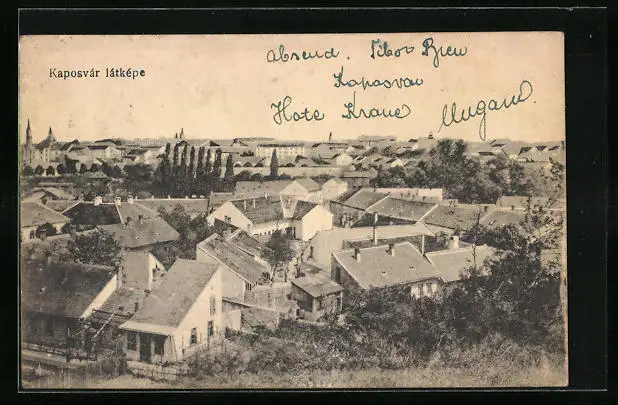 Kaposvár látképe
Absend. Tibor
Kaposvar
Hote Krane Ungarn.